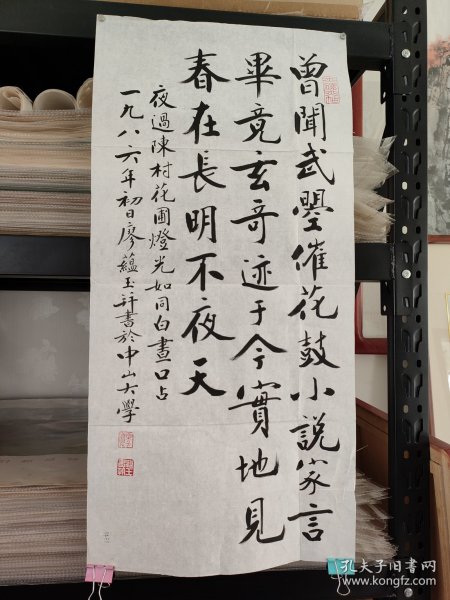 曾聞武曌催花鼓小說家言
畢竟玄奇迹于今實地見
春在長明不夜天
夜過陳村花圃燈光如同白晝口占
一九八六年初日廖蘊玉并書於中山大學
孔夫子旧书网
www.kongfz.com